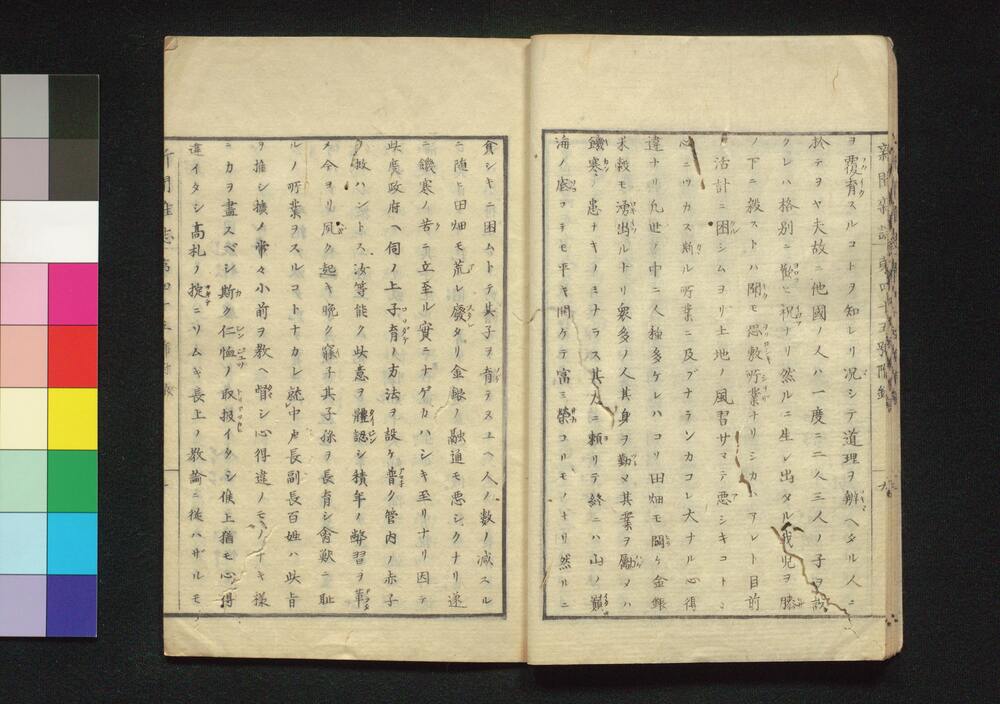 ヲ覆育スルコトヲ知レリ況シテ道理ヲ辨ヘタル人ニ
於テヲヤ夫故ニ他國ノ人ハ一度ニ二人三人ノ子ヲ設
クレハ格別ニ歡ヒ祝ナリ然ルニ生レ出タル我兒ヲ膝
ノ下ニ殺ストハ聞モ恐敷所業ナリシカハアレト目前
ノ活計ニ困シムヨリ土地ノ風習サマテ惡シキコトヽ
心ニツカス斯ル所業ニ及ブナランカコレ大ナル心得
違ナリ凡世ノ中ニ人種多ケレハコソ田畑モ開ケ金銀
米穀モ湧出ルトリ衆多ノ人其身ヲ勤メ其業ヲ勵メハ
饑寒ノ患ナキノミナラス其力ニ頼リテ終ニハ山ノ巓
海ノ底ヲモ平キ開ケテ富ミ榮コリモノナリ然ルニ
貪シキニ困ムトテ其子ヲ育テスユヘ人ノ數ノ減スル
ニ随ヒ田畑モ荒レ廢タリ金銀ノ融通モ悪シクナリ遂
ニ饑寒ノ苦ニ立至ル實ニナゲカハシキ至リナリ因テ
此度政府ヘ伺ノ上子育ノ方法ヲ設ケ普ク管内ノ赤子
ヲ救ハントス汝等能ク此意ヲ體認シ積年ノ弊習ヲ革
メ今ヨリ風ク起キ晩ク寢子其子孫ヲ長育シ禽獣ニ耻
ルノ所業ヲスルコトナカレ就中戸長副長百姓ハ此旨
ヲ推シ擴ノ常々小前ヲ教ヘ督シ心得違ノモノナキ様
ニカヲ盡スベシ斯ク仁恤ノ取扱イタシ候上猶モ心得
違イタシ高札ノ掟ニソムキ長上ノ教諭ニ從ハザルモ